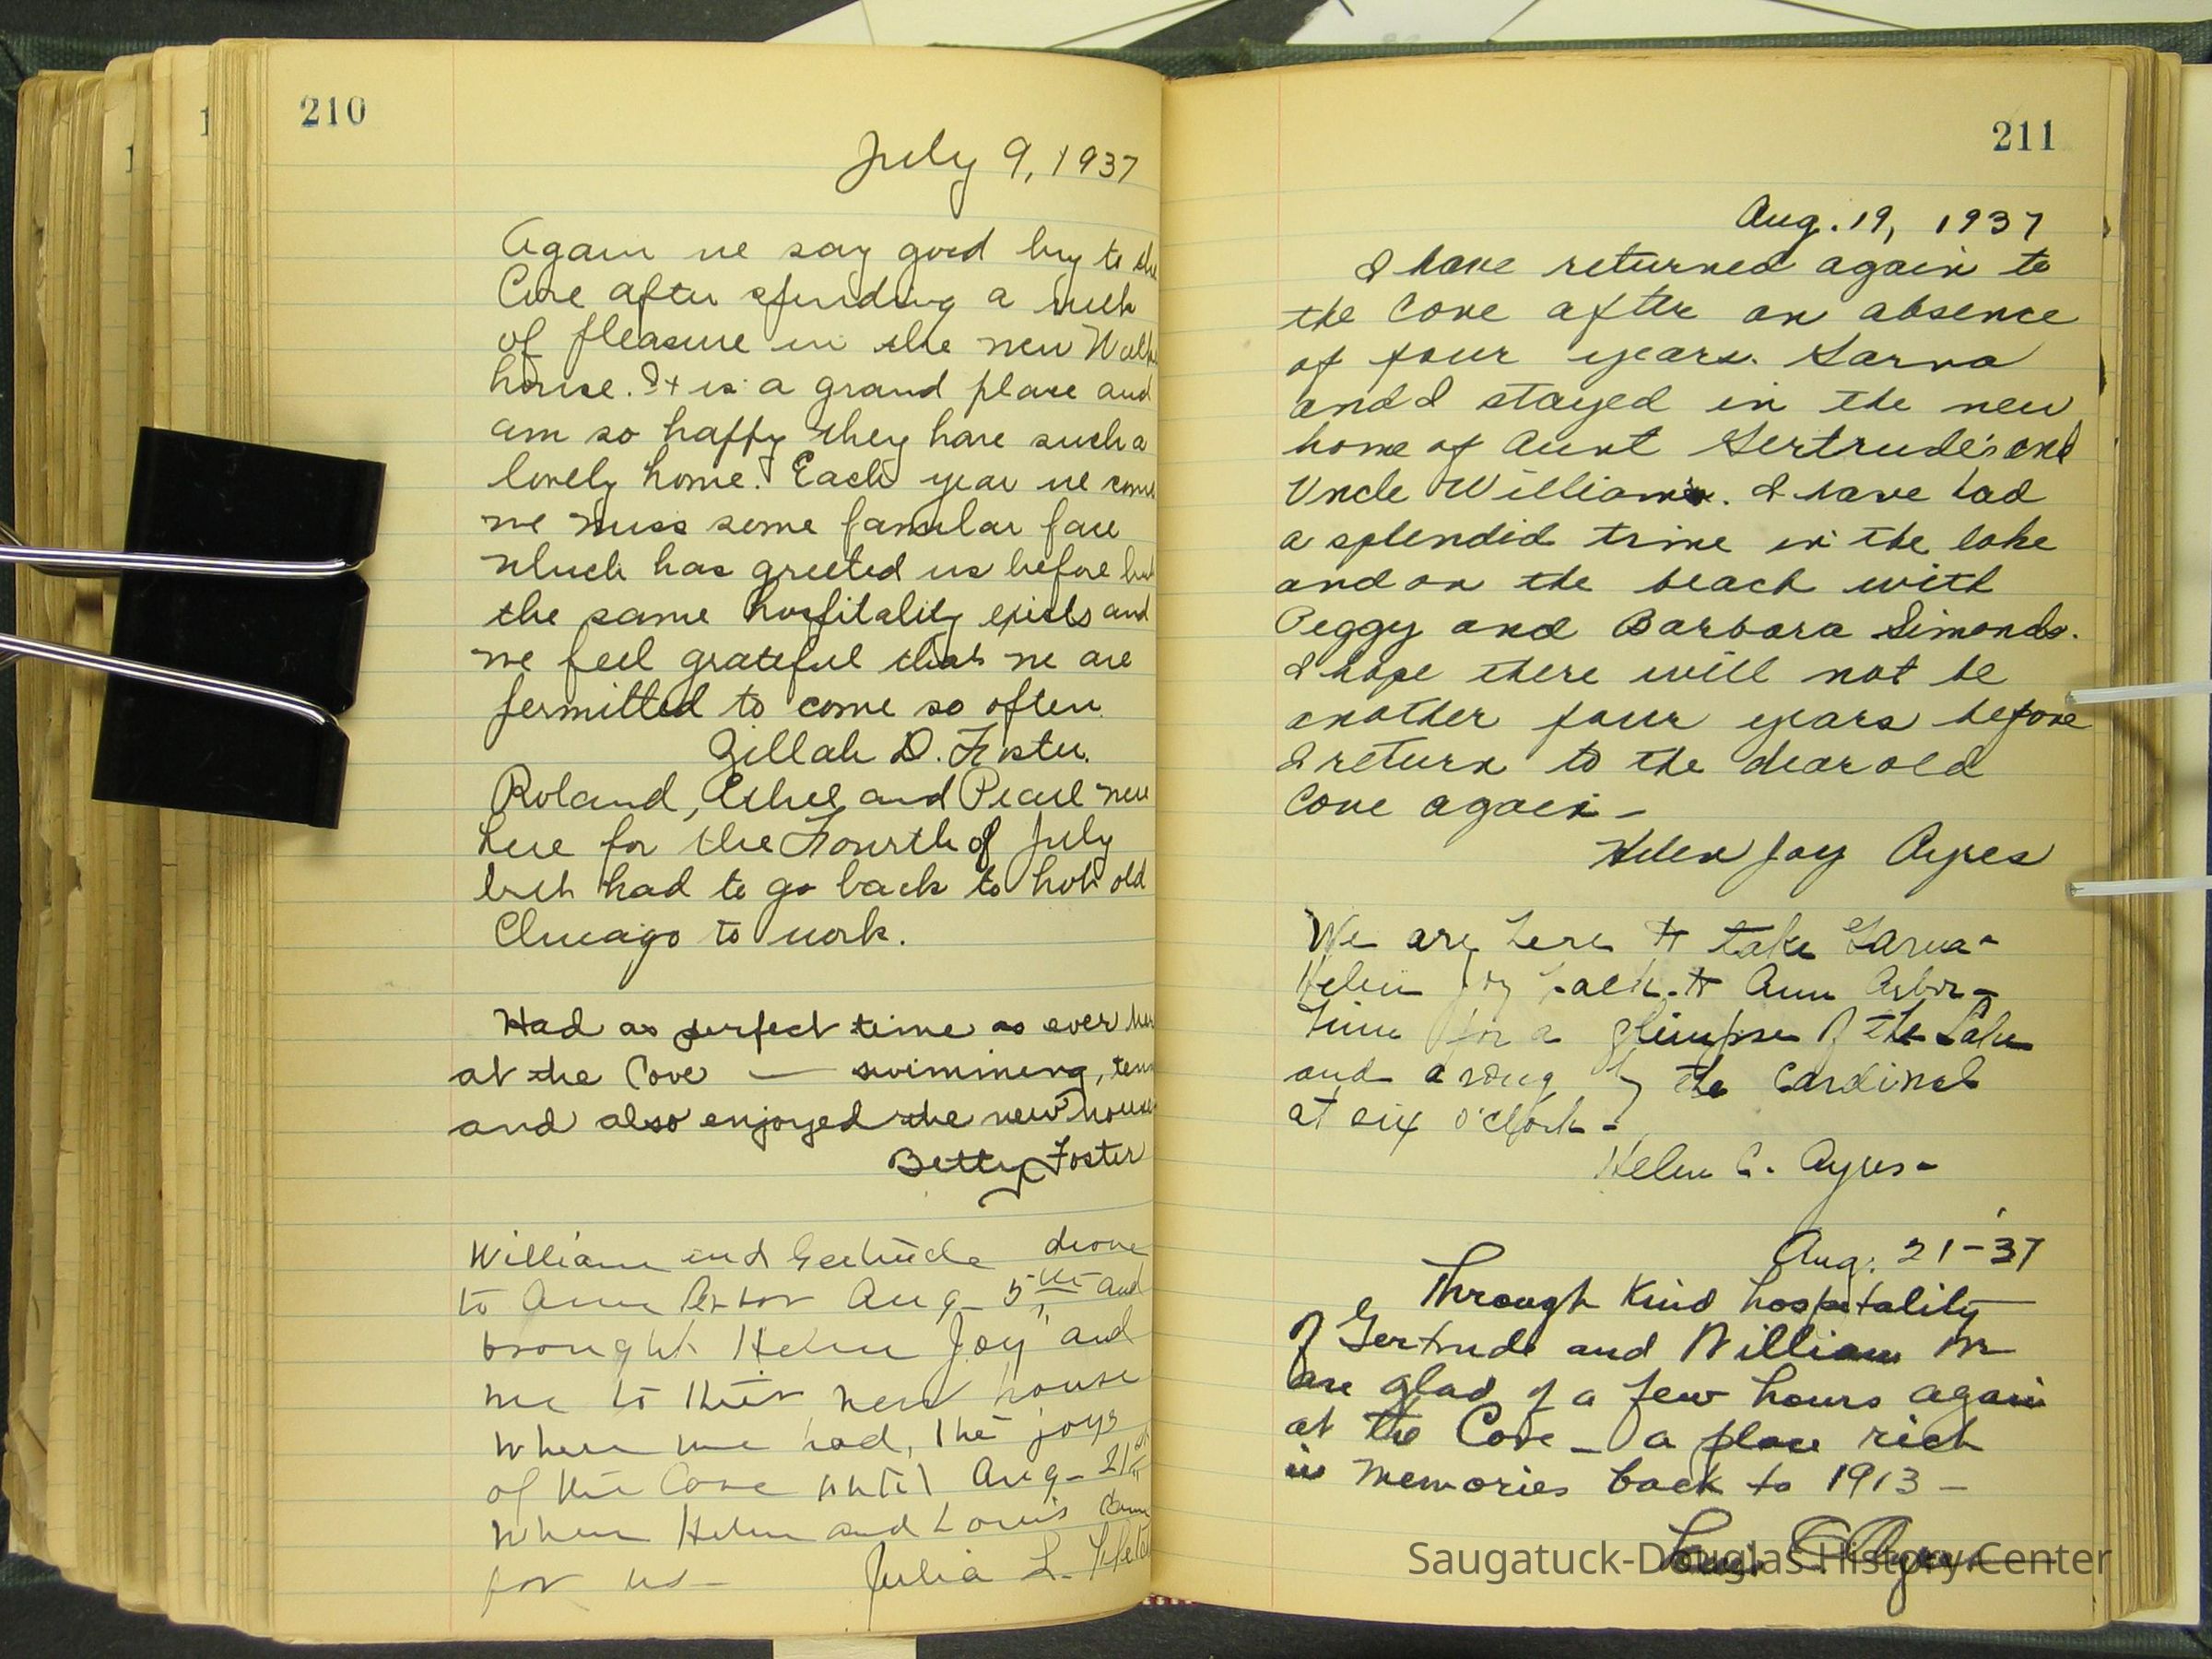 210
July 9, 1937
Again we say good by to the
Cove after spending a week
of pleasure in the new
house. It is a grand place and
am so happy they have such a
lovely home. Each year we come
we miss some familar face
which has greeted us before but
the same hospitality exists and
we feel grateful that we are
permitted to come so often.
Zillah D. Foster.
Roland, Ethel, and Pearl were
here for the Fourth of July
but had to go back to hot old
Chicago to work.
Had as perfect time as ever here
at the Cove — swimming,
and also enjoyed the new house
Betty Foster
William and Gertrude drove
to Ann Arbor Aug - 5th and
brought Helen Joy and
me to their new house
where we had, the joys
of the Cove until Aug - 21st
when Helen and Louis came
for us - Julia L.
211
Aug. 19, 1937
I have returned again to
the Cove after an absence
of four years. Garva
and I stayed in the new
home of Aunt Gertrude's and
Uncle William's. I have had
a splendid time in the lake
and on the beach with
Peggy and Barbara Simonds.
I hope there will not be
another four years before
I return to the dear old
Cove again -
Helen Joy Ayres
We are here to take Garva -
Helen Joy back to Ann Arbor -
Time for a glimpse of the Lake
and a song by the Cardinal
at six o'clock -
Helen C. Ayres -
Aug. 21 - '37
Through kind hospitality
of Gertrude and William we
are glad of a few hours again
at the Cove - a place rich
in memories back to 1913 -
Ayres
Saugatuck-Douglas History Center